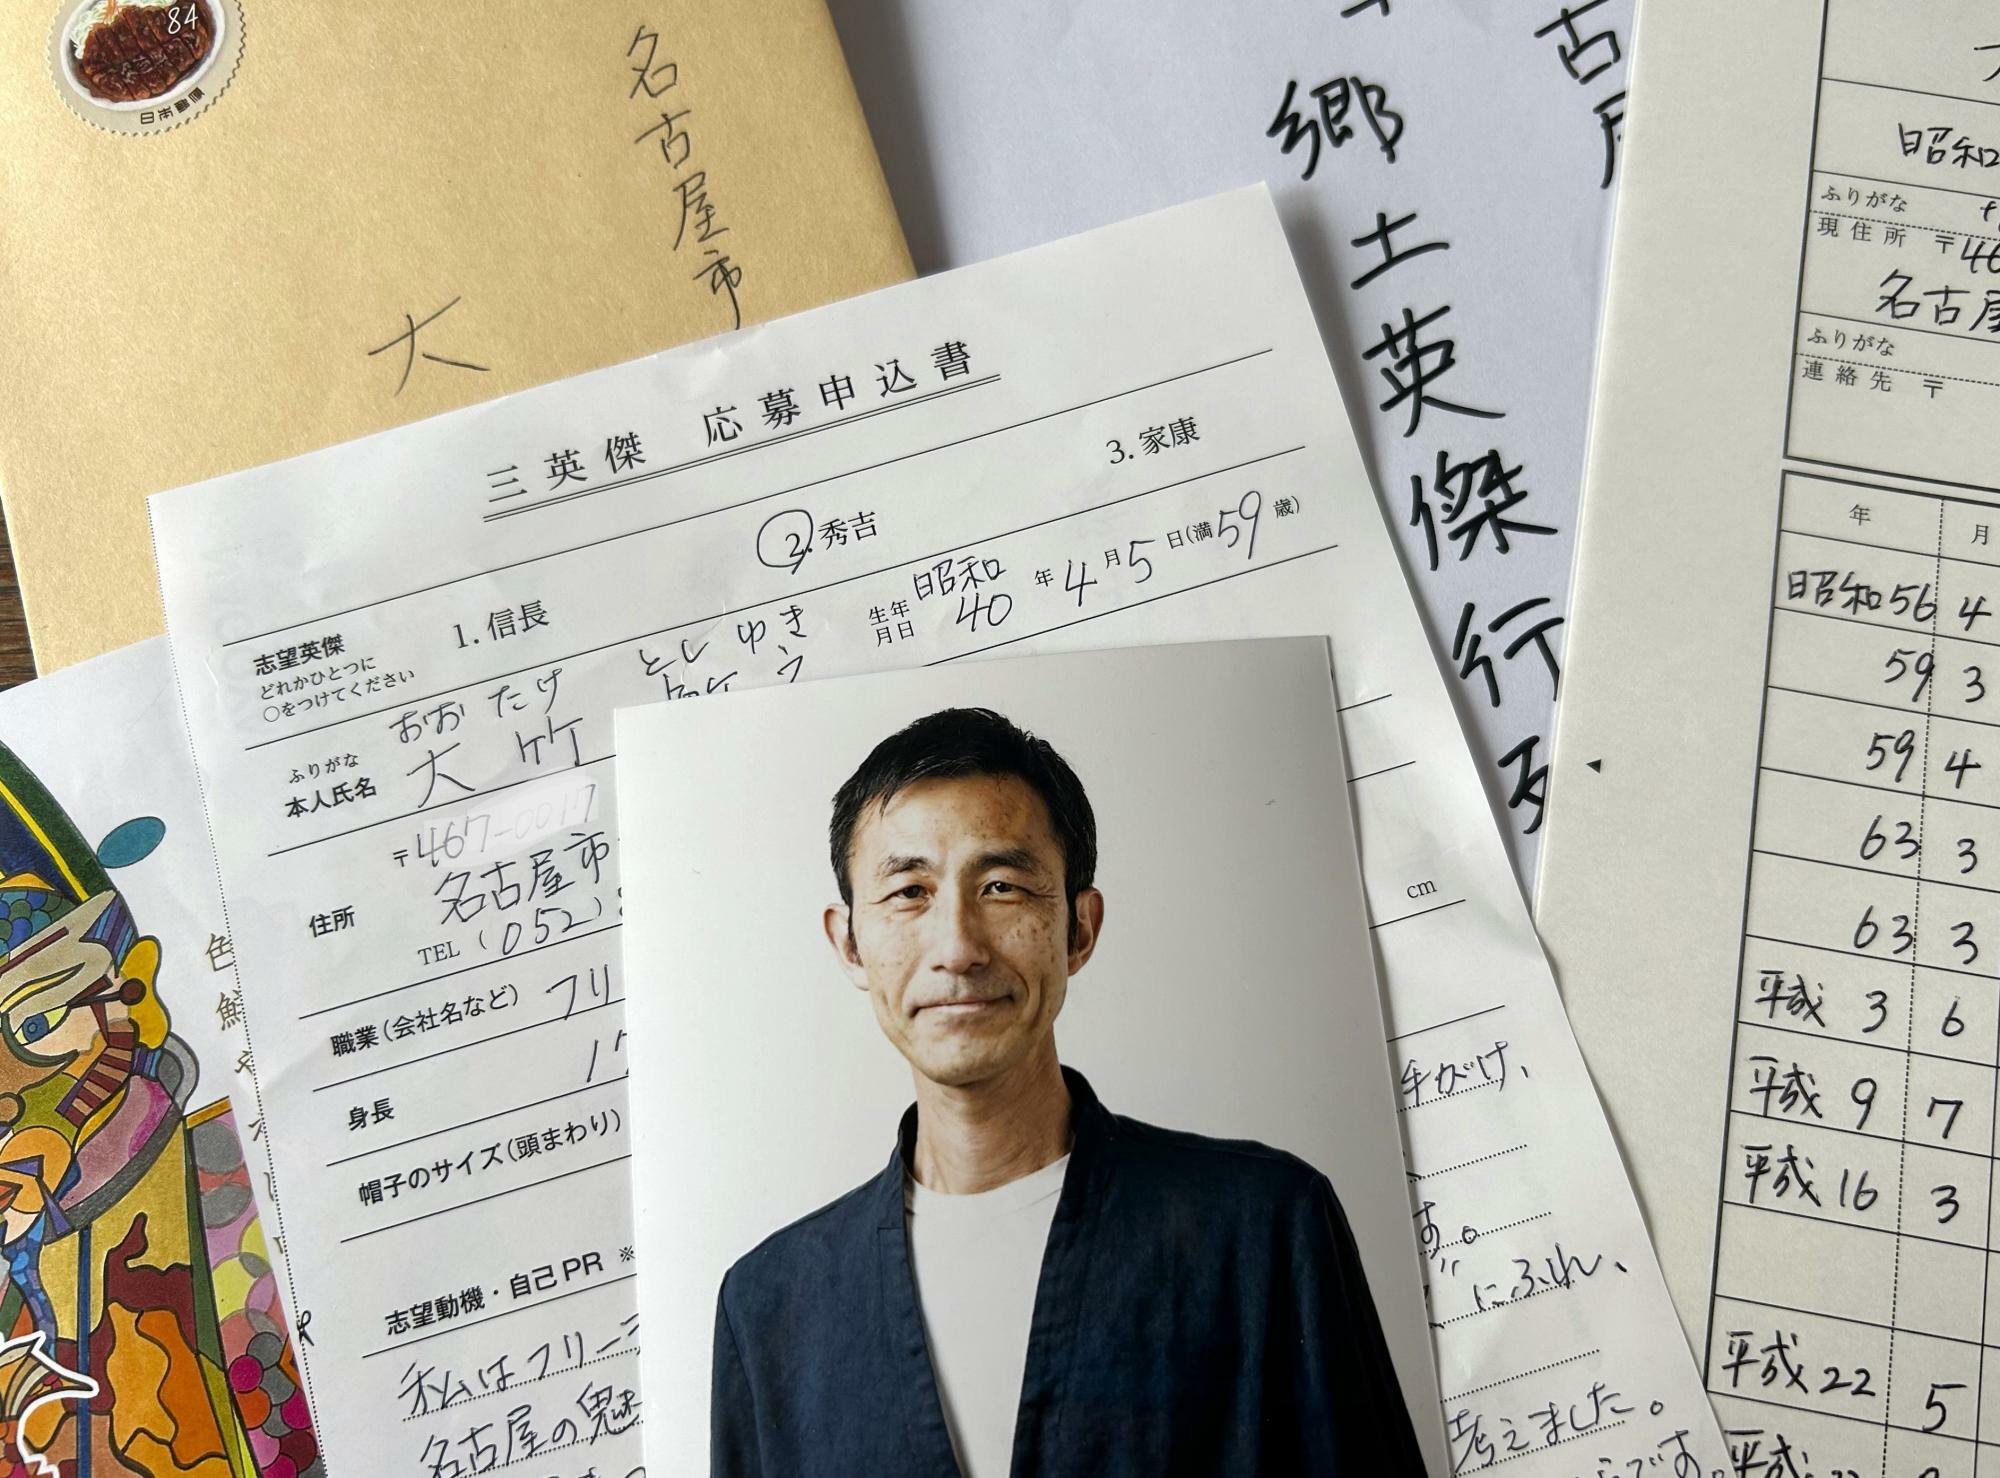 84
日本郵便
名古屋市
大
古屋
郷土英傑行列
三英傑 応募申込書
志望英傑
どれかひとつに
○をつけてください
1. 信長
2. 秀吉
3. 家康
ふりがな
おお たけ としゆき
本人氏名
大竹 敏之
生年
月日
昭和
40 年 4 月 5 日(満 59 歳)
住所
〒467-0017
名古屋市
TEL (052)
職業(会社名など) フリ
身長
17
cm
帽子のサイズ(頭まわり)
志望動機・自己PR ※
私はフリー
手がけ、
名古屋の魅
す。
にふれ、
考えました。
です。
昭和
ふりがな
現住所 〒46
名古屋
ふりがな
連絡先 〒
年 月
昭和56 4
59 3
59 4
63 3
63 3
平成 3 6
平成 9 7
平成 16 3
平成 22 5
平成